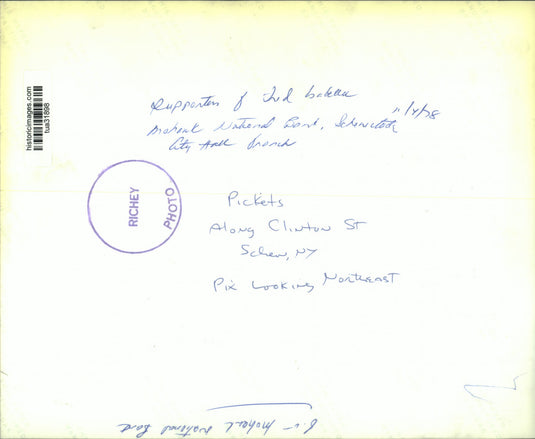 historicimages.com
tua31898
Supporters of Fred Isabella
11/4/78
Mohawk National Bank, Schenectady
City Hall branch
RICHEY
PHOTO
Pickets
Along Clinton St
Schen, NY
Pix Looking Northeast
Mohawk National Bank